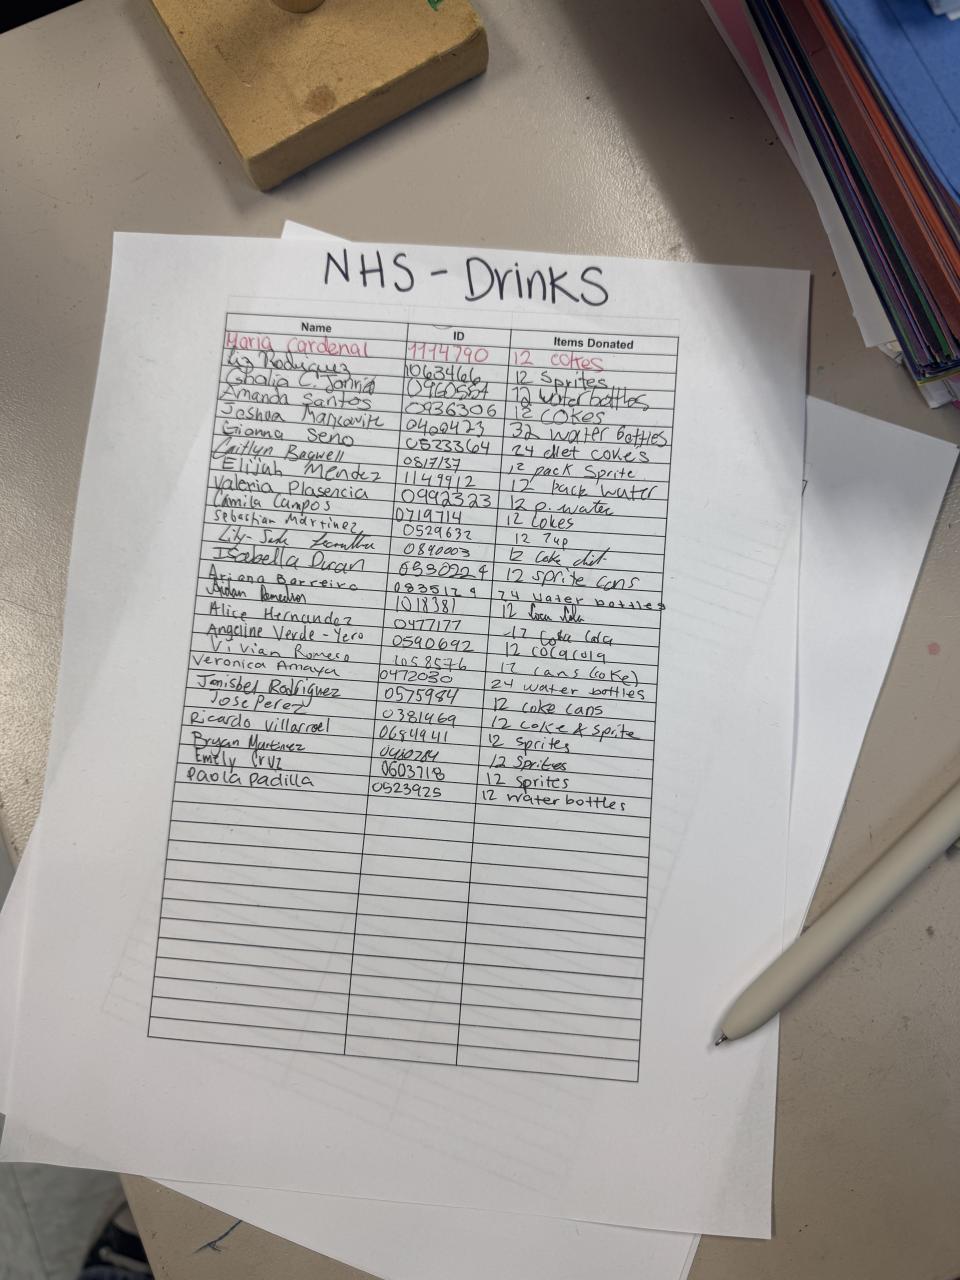 NHS - Drinks
Name ID Items Donated
Maria Cardenal 1114790 12 cokes
Liz Rodriguez 1063466 12 Sprites
12 water bottles
Amanda Santos 0936306 12 COKES
Joshua 0460423 32 water bottles
Gionna Seno 0523364 24 diet cokes
Caitlyn Bagwell 0817137 12 pack Sprite
Elijah Mendez 1149912 12 pack water
Valeria Plasencia 0992323 12 p. water
Camila Campos 0719714 12 Cokes
Sebastian Martinez 0529632 12 7up
0840003 12 coke diet
Isabella Duran 12 sprite cans
Ariana Barreiro 24 water bottles
Aidan 1018381 12 Coca Cola
Alice Hernandez 0477177 12 Coka Cola
Angeline Verde-Yero 0590692 12 cocacola
Vivian Romero 1058576 12 cans (coke)
Veronica Amaya 0472030 24 water bottles
Janisbel Rodriguez 0575984 12 coke cans
Jose Perez 0381469 12 coke & sprite
Ricardo Villarroel 0684941 12 sprites
Bryan Martinez 12 Sprites
Emely Cruz 0603718 12 sprites
Paola Padilla 0523925 12 water bottles